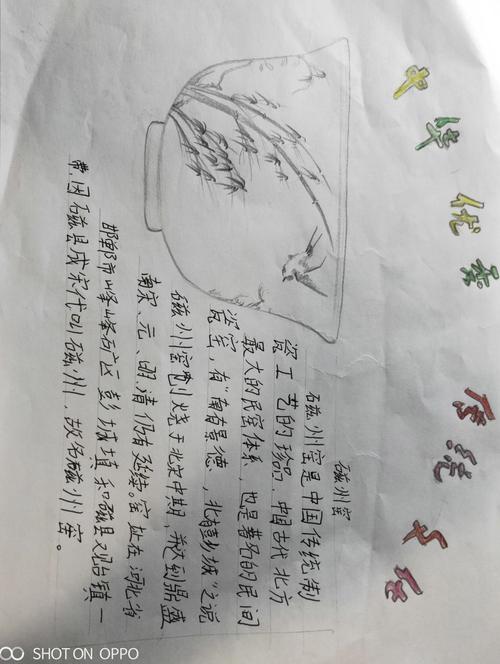 中华优秀传统文化
磁州窑
磁州窑是中国传统制
瓷工艺的珍品,中国古代北方
最大的民窑体系,也是著名的民间
瓷窑,有“南有景德,北有彭城”之说
磁州窑创烧于北宋中期,并达到鼎盛
南宋、元、明、清仍有延续。窑址在河北省
邯郸市峰峰矿区彭城镇和磁县观台镇一
带,因磁县成宋代叫磁州,故名磁州窑。
SHOT ON OPPO